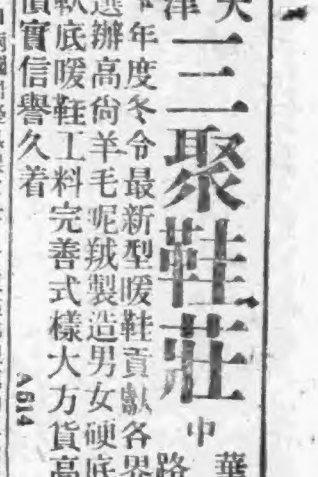 天津
三聚鞋莊
中華路
年度冬令最新型暖鞋貢獻各界
選辦高尙羊毛呢羢製造男女硬底
軟底暖鞋工料完善式樣大方貨高
價實信譽久着
A614